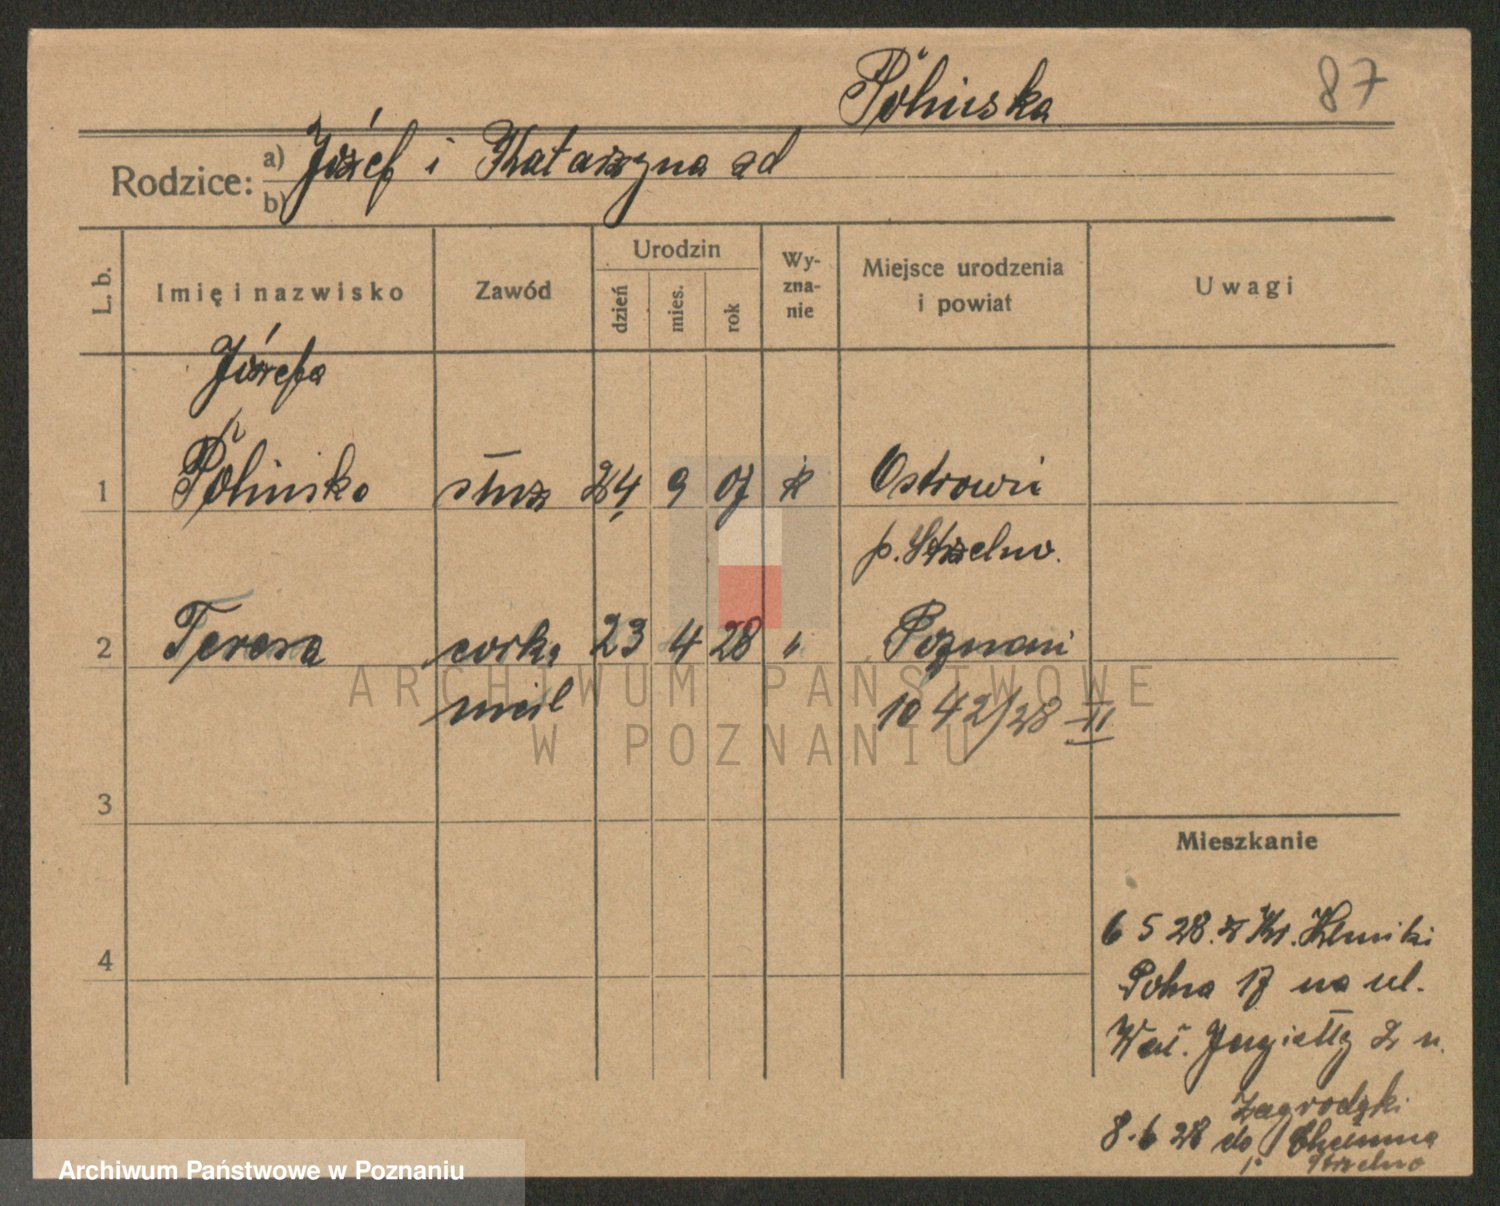 87
Rodzice:
a) Józef i Katarzyna zd
b)
L. b.
Imię i nazwisko
Zawód
Urodzin
dzień
mies.
rok
Wy-
zna-
nie
Miejsce urodzenia
i powiat
Uwagi
Józefa
1 służ 24 9 07 k
p. Strzelno.
2 Teresa córka 23 4 28 " Poznań
nieśl 1042/28 II
3
Mieszkanie
4
6 5 28. z
Polna 17 na ul.
Wał. Jagiełły 2 u.
Zagrodzki
8.6 28 do
p. Strzelno
ARCHIWUM PAŃSTWOWE
W POZNANIU
Archiwum Państwowe w Poznaniu